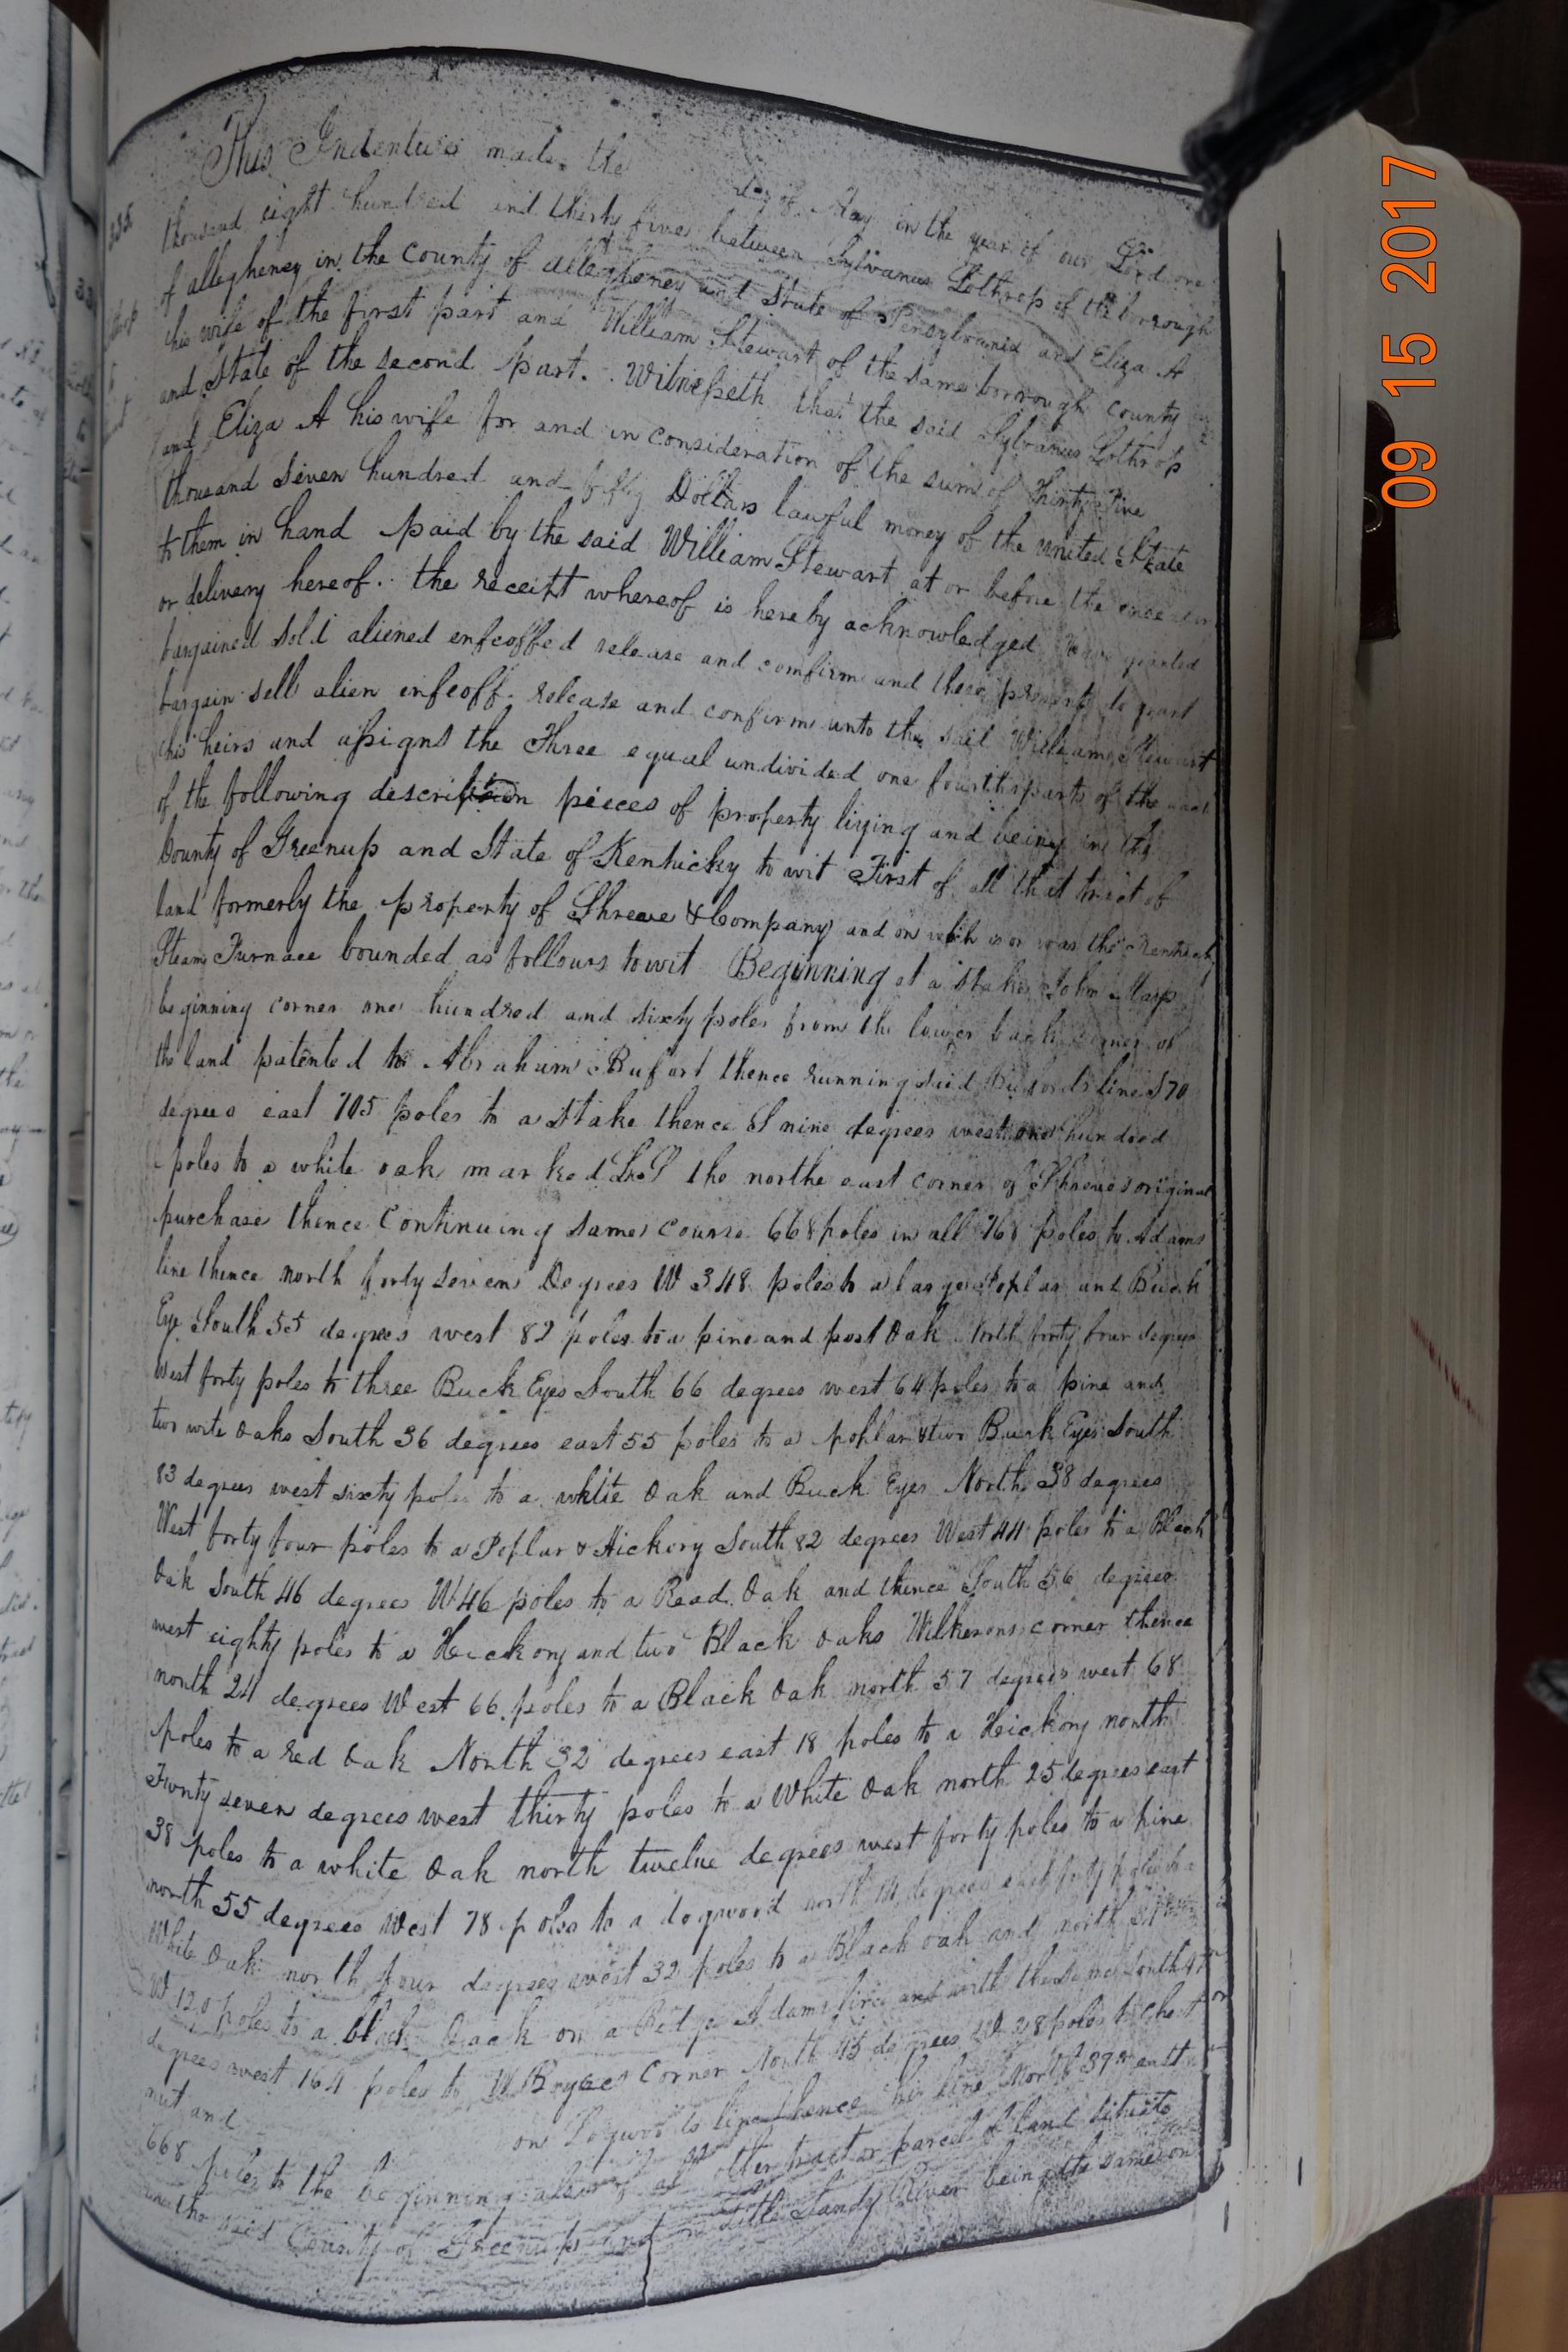 This Indenture made the day of May in the year of our Lord one
thousand eight hundred and thirty five between Sylvanus Lothrop of the borough
of allegheney in the County of allegheney and State of Pensylvania and Eliza A
his wife of the first part and William Stewart of the same borrough County
and State of the second part. Witnesseth that the said Sylvanus Lothrop
and Eliza A his wife for and in consideration of the sum of Thirty Five
thousand seven hundred and fifty Dollars lawful money of the united State
to them in hand paid by the said William Stewart at or before the
or delivery hereof. the receipt whereof is hereby acknowledged Have granted
bargained sold aliened enfeoffed release and comfirm and these presents do grant
bargain sell alien enfeoff release and confirm unto the said William Stewart
his heirs and assigns the Three equal undivided one fourths parts of the
of the following pieces of property lying and being in the
County of Greenup and State of Kentucky to wit First of all that tract of
land formerly the property of Shreve & Company and on which is or was the
Steam Furnace bounded as follows towit Beginning at a stake John
beginning corner one hundred and sixty poles from the lower back corner of
the land patented to Abraham Buford thence running said Bufords line S 70
degrees east 705 poles to a stake thence S nine degrees west one hundred
poles to a white oak marked the northe east corner of Shreves original
purchase thence Continuing same course 668 poles in all 768 poles to Adams
line thence north forty seven Degrees W 348 poles to a large Poplar and Buck
Eye South 55 degrees west 82 poles to a pine and post Oak North forty four degrees
West forty poles to three Buck Eyes South 66 degrees west 64 poles to a pine and
two wite Oaks South 36 degrees east 55 poles to a poplar & two Buck Eyes South
83 degrees west sixty poles to a white Oak and Buck Eyes North 38 degrees
West forty four poles to a Poplar & Hickory South 82 degrees West 44 poles to a Black
Oak South 46 degrees W 46 poles to a Read Oak and thence South 56 degrees
west eighty poles to a Heickory and two Black Oaks Wilkersons corner thence
north 24 degrees West 66 poles to a Black Oak north 57 degrees west 68
poles to a red Oak North 32 degrees east 18 poles to a Heickory north
Twnty seven degrees west thirty poles to a White Oak north 25 degrees east
38 poles to a white Oak north twelve degrees west forty poles to a pine
north 55 degrees West 78 poles to a dogword north degrees east forty poles to a
White Oak north four degrees west 32 poles to a Black oak and north
W 120 poles to a black Oack on a Ridge Adams line and with the same South
degrees west 164 poles to W Bryces Corner North 45 degrees W 28 poles to chest
nut and on Dogwood to line thence his line North 39 east
668 poles to the beginning also all other tract or parcel of land situate
in the said County of Greenup and on Little Sandy River being the same on
09 15 2017